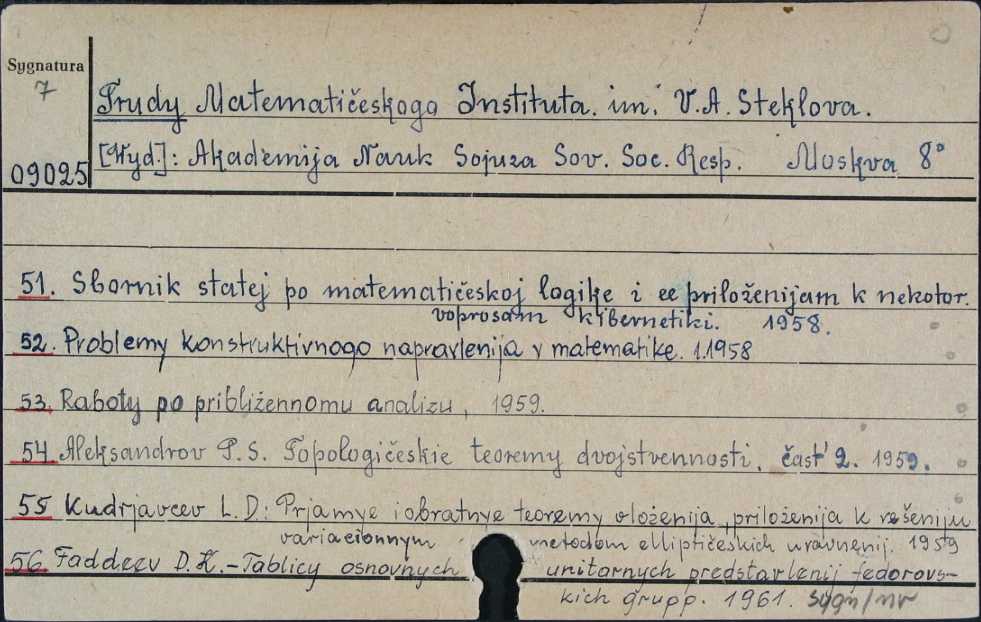 Sygnatura
7
Trudy Matematičeskogo Instituta. im. V.A. Steklova.
[Wyd]: Akademija Nauk Sojuza Sov. Soc. Resp. Moskva 8°
09025
51. Sbornik statej po matematičeskoj logike i ee priloženijam k nekotor.
voprosam kibernetiki. 1958.
52. Problemy konstruktivnogo napravlenija v matematike. 1.1958
53. Raboty po približennomu analizu, 1959.
54. Aleksandrov P.S. Topologičeskie teoremy dvojstvennosti. čast' 2. 1959.
55 Kudrjavcev L.D: Prjamye i obratnye teoremy vloženija, priloženija k rešeniju
variacionnym metodom elliptičeskich uravnenij. 1959
56. Faddeev D.K.-Tablicy osnovnych unitarnych predstavlenij fedorovs-
kich grupp. 1961. sygn/nr